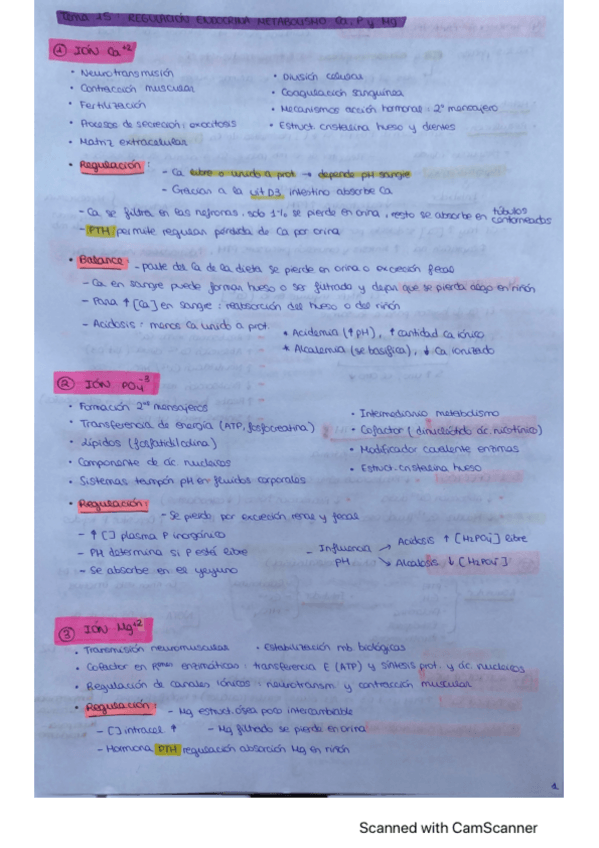 Tema 15 REGULACIÓN ENDOCRINA METABOLISMO Ca, P y Mg
① IÓN Ca⁺²
• Neurotransmisión
• Contracción muscular
• Fertilización
• Procesos de secreción: exocitosis
• Matriz extracelular
• División celular
• Coagulación sanguínea
• Mecanismos acción hormonal: 2º mensajero
• Estruct. cristalina hueso y dientes
• Regulación:
- Ca libre o unido a prot → depende pH sangre
- Gracias a la vit D3, intestino absorbe Ca
- Ca se filtra en las nefronas, solo 1% se pierde en orina, resto se absorbe en túbulos contorneados
- PTH permite regular pérdida de Ca por orina
• Balance: - parte del Ca de la dieta se pierde en orina o excreción fecal
- Ca en sangre puede formar hueso o ser filtrado y dejar que se pierda algo en riñón
- Para ↑ [Ca] en sangre: reabsorción del hueso o del riñón
- Acidosis: menos Ca unido a prot.
* Acidemia (↑pH), ↑ cantidad Ca iónico
* Alcalemia (se basifica), ↓ Ca ionizado
② IÓN PO₄⁻³
• Formación 2ᵒˢ mensajeros
• Transferencia de energía (ATP, fosfocreatina)
• Lípidos (fosfatidilcolina)
• Componente de ác. nucleicos
• Sistemas tampón pH en fluidos corporales
• Intermediario metabolismo
• Cofactor (dinucleótido ác. nicotínico)
• Modificador covalente enzimas
• Estruct. cristalina hueso
• Regulación:
- Se pierde por excreción renal y fecal
- ↑ [] plasma P inorgánico
- PH determina si P está libre
- Se absorbe en el yeyuno
- Influencia PH → Acidosis ↑ [H₂PO₄⁻] libre
↘ Alcalosis ↓ [H₂PO₄⁻]
③ IÓN Mg⁺²
• Transmisión neuromuscular • Estabilización mb biológicas
• Cofactor en enzimáticas: transferencia E (ATP) y síntesis prot. y ác. nucleicos
• Regulación de canales iónicos: neurotransm. y contracción muscular
• Regulación: - Mg estruct. ósea poco intercambiable
- [] intracel ↑ - Mg filtrado se pierde en orina
- Hormona PTH regulación absorción Mg en riñón
1
Scanned with CamScanner